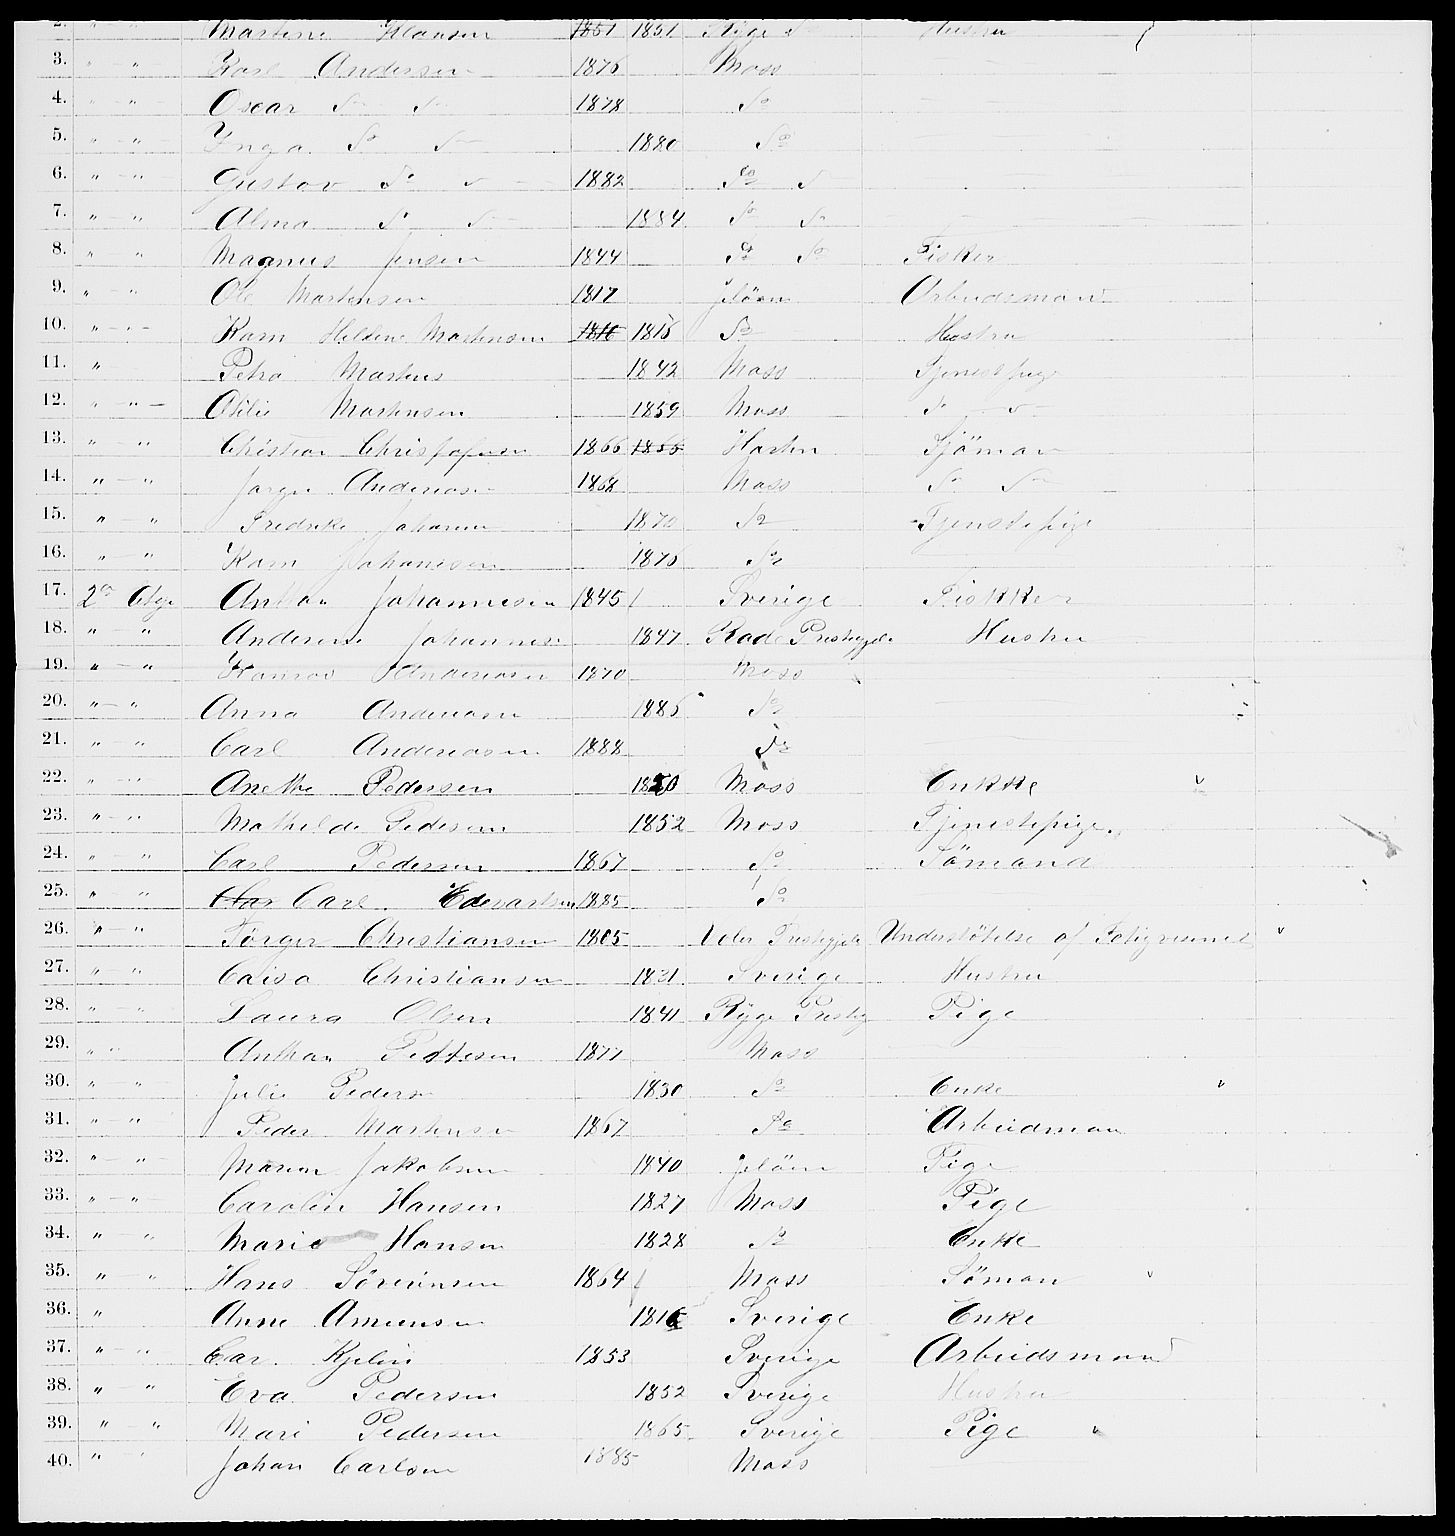 2. " — " Martine Hansen 1851 1851 Rige Do Hustru
3. " — " Karl Andersen 1876 Moss
4. " " Oscar Do Do 1878 Do
5. " — " Ynga Do Do 1880 Do
6. " — " Gustav Do Do 1882 Do Do
7. " — " Alma Do Do 1884 Do Do
8. " — " Magnus Jensen 1844 Do Do Fisker
9. " — " Ole Martensen 1817 Jelöen Arbeidsmand
10. " — " — Karn Hellene Martensen 1816 1815 Do Hustru
11. " Petra Martens 1842 Moss Tjenestpige
12. " — " — Otilie Martensen 1859 Moss Do Do
13. " — " Christian 1866 1866 Sjöman
14. " — " Andersen 1868 Moss Do Do
15. " — " Fredrike 1870 Do Tjenstepige
16. " — " Karn Johanesen 1876 Do
17. 2den Etage Anthon Johannesen 1845 Sverige Fiskker
18. " " Johannesen 1847 Rade Prestegjeld Hustru
19. " — " 1870 Moss
20. " — " Anna Andersen 1885 Do
21. " — " Carl Andersen 1888 Do
22. " — " Anethe Pedersen 1820 Moss Enkke
23. " — " Mathilde Pedersen 1852 Moss Tjenestepige
24. " — " Carl Pedersen 1867 Do Sömand
25. " — " Carl Edevartsen 1885 Do
26. " — " Törger Christiansen 1805 Prestegjeld Understötelse af
27. " — " Caisa Christiansen 1831 Sverige Hustru
28. " — " Laura Olsen 1841 Rygge Presteg Pige
29. " " Anthon Pettesen 1877 Moss
30. " — " Julie Peders 1830 Do Enke
31. " — " Peder Martensen 1867 Do Arbeidman
32. " — " Maren Jakobsen 1840 Jelöen Pige
33. " — " — Carolin Hansen 1827 Moss Pige
34. " — " Marie Hansen 1828 Do Enke
35. " — " Hans Sörensen 1864 Moss Söman
36. " Anne Amunsen 1816 Sverige Enke
37. " — " Car. Kjelin 1853 Sverige Arbeidsmand
38. " — " Eva Pedersen 1852 Sverige Hustru
39. " — " Mari Pedersen 1865 Sverige Pige
40. " — " Johan Carlsen 1885 Moss